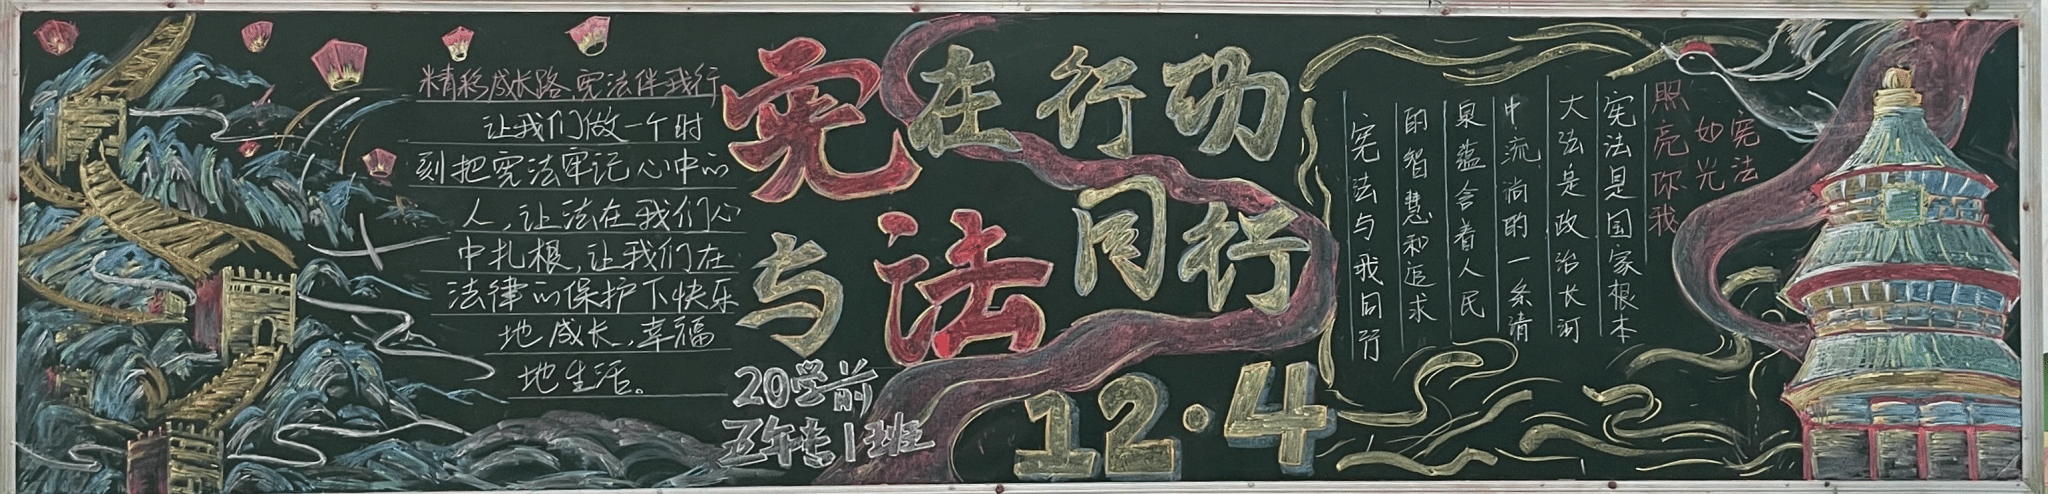 精彩成长路,宪法伴我行
让我们做一个时
刻把宪法牢记心中的
人,让法在我们心
中扎根,让我们在
法律的保护下快乐
地成长,幸福
地生活。
宪在行动
与法同行
20学前
五年专1班
12·4
宪法
如光
照亮你我
宪法是国家根本
大法是政治长河
中流淌的一条清
泉蕴含着人民
的智慧和追求
宪法与我同行